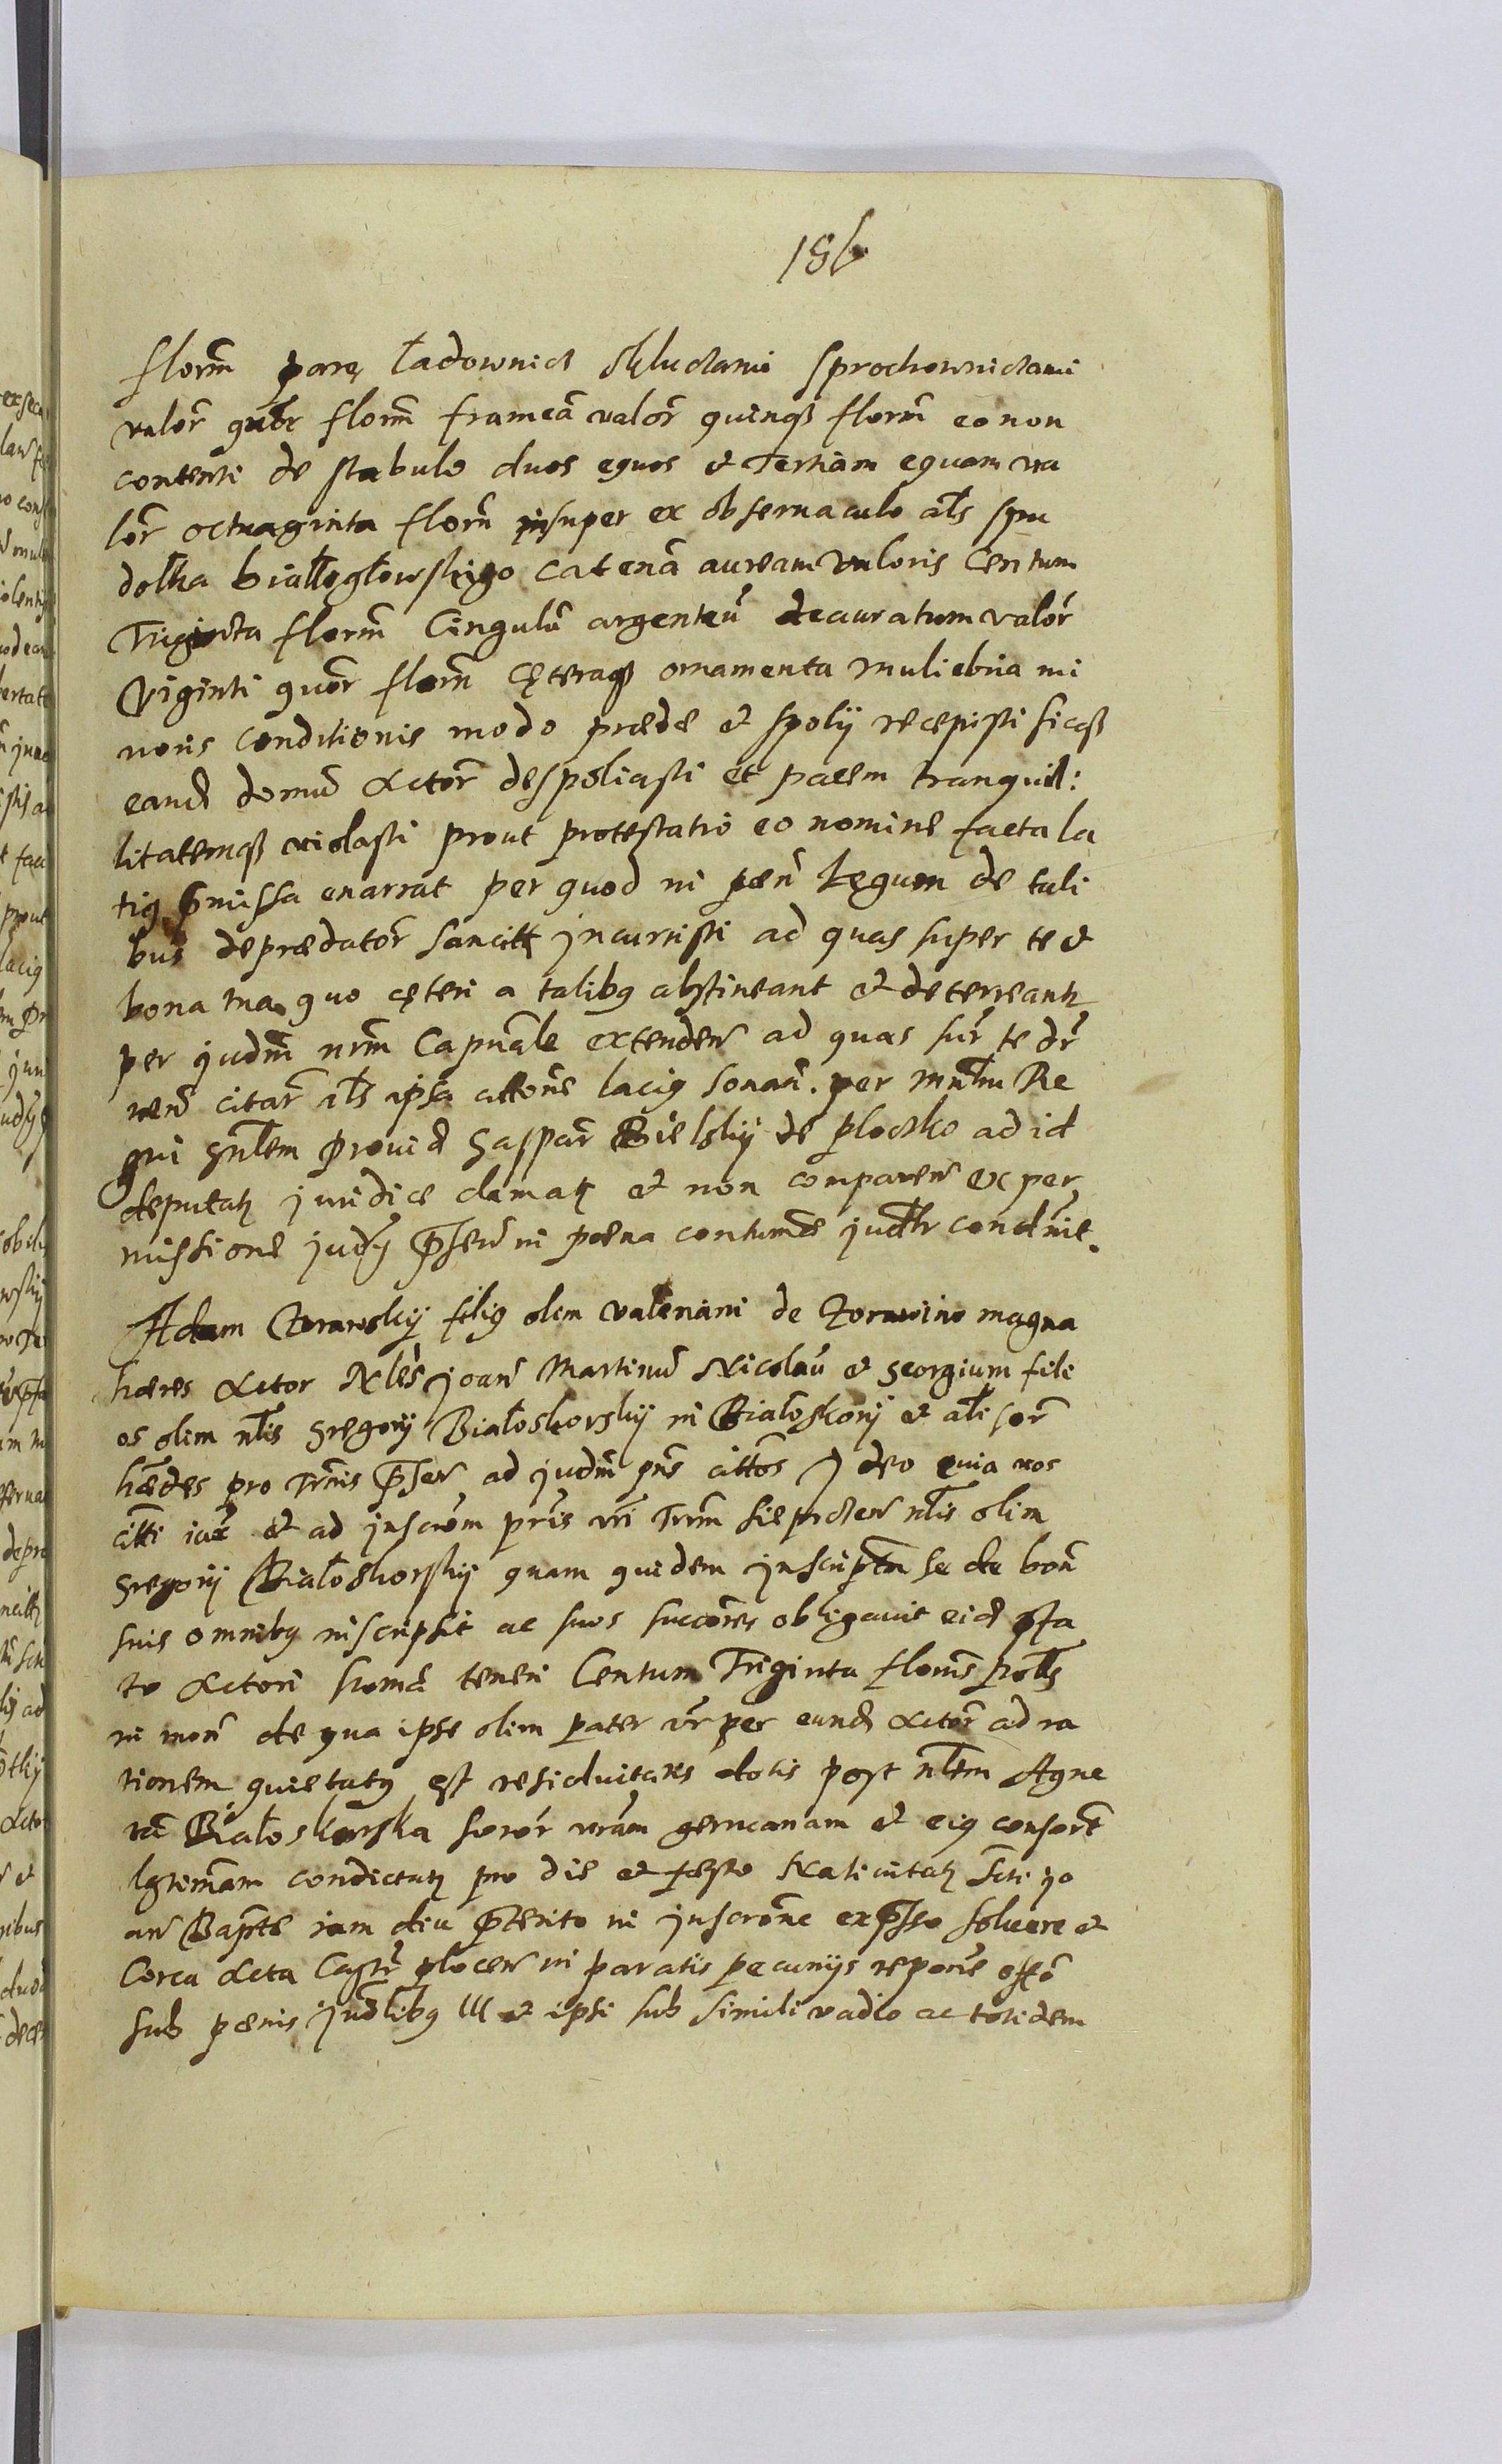 186
florm̃ parę ładownicz z kluczami sprochownicami
valor̃ quor̃ florm̃ frameã valor̃ quinqȝ florm̃ eo non
contenti de stabulo duos equos et Tertiam equam va
lor̃ octuaginta florm̃ insuper ex observaculo als spu
dołka białłogłowskiego catenã auream valoris Centum
Triginta florm̃ Cingulũ argenteũ deauratum valor̃
Viginti quor̃ florm̃ Cęteraqȝ ornamenta muliebria mi
noris conditionis modo prædæ et spolij recepisti sicqȝ
eand domũ Actor̃ despoliasti et pacem tranquil:
litatemqȝ violasti prout protestatio eo nomine facta la
tiȝ p̃missa enarrat per quod in pæñ Legum de tali
bus deprædator̃ sancitt incurristi ad quas super te et
bona tua quo cęteri a talibȝ abstineant et deterreantr
per judm̃ nrm̃ Capnãle extenden̄ ad quas sur̃ te dr̃
nend citar̃ als ipsa attone laciȝ sonañ. per mnłm Re
gni gñlem provid Gaspar̃ Bielskij de płoczko ad id
deputatȝ juridice clamatȝ et non comparen̄ ex per
missione judȝ p̃sen̄ in pæna contumae judtr condnit.
Adam Czernwskij filiȝ olim valeriani de Zorawino magna
hæres Actor Nłes joañ Martinũ Nicolaũ et georgium fili
os olim nłis Gregorij Białoskorskij in Białoskorij et ałi sor̃
hædes pro Trmis p̃sen̄ ad judm̃ pñs cittos Ideo quia vos
citti iux̃ et ad inscrom pris vri Trm̃ Sieprczen̄ nłis olim
Gregorij Białoskorskij quam quidem inscripta se de boñ
suis omnibȝ inscripsit ac suos succores obligavit eid p̃fa
to Actori somã teneri Centum Triginta flonis połs
in moñ de qua ipse olim pater vr per eund Actor̃ ad ra
tionem quietatȝ est residuitatis dotis post nłem Agne
tã Białoskorska soror̃ vrãm germanam et eiȝ consort
lgtimãm condictatȝ pro die et festo Nativitatȝ Scti jo
añ Bapte iam diu p̃terito in inscrone exp̃sso solvere et
Corã Acta Castr̃ płocen̄ in paratis pecunijs repone
sub pænis judłibȝ lll et ipsi sub simili vadio ac totidem